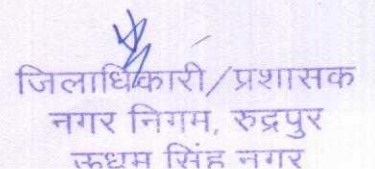 जिलाधिकारी/प्रशासक
नगर निगम, रुद्रपुर
ऊधम सिंह नगर